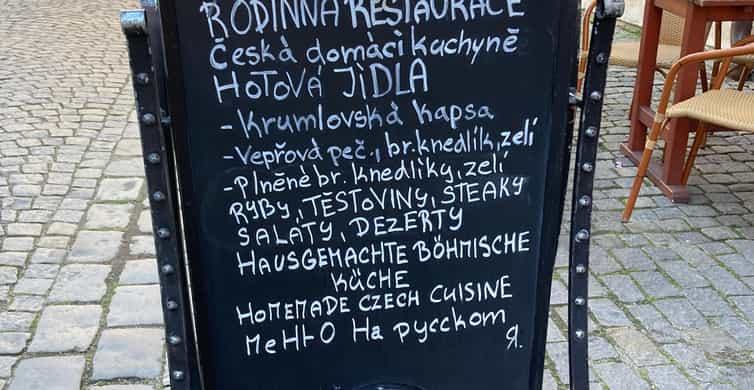 RODINNÁ RESTAURACE
Česká domácí kuchyně
HOTOVÁ JÍDLA
-Krumlovská kapsa
-Vepřová peč., br.knedlík, zelí
-Plněné br. knedlíky, zelí
RYBY, TĚSTOVINY, STEAKY
SALÁTY, DEZERTY
HAUSGEMACHTE BÖHMISCHE
KÜCHE
HOMEMADE CZECH CUISINE
МеНЮ На русском
Я.